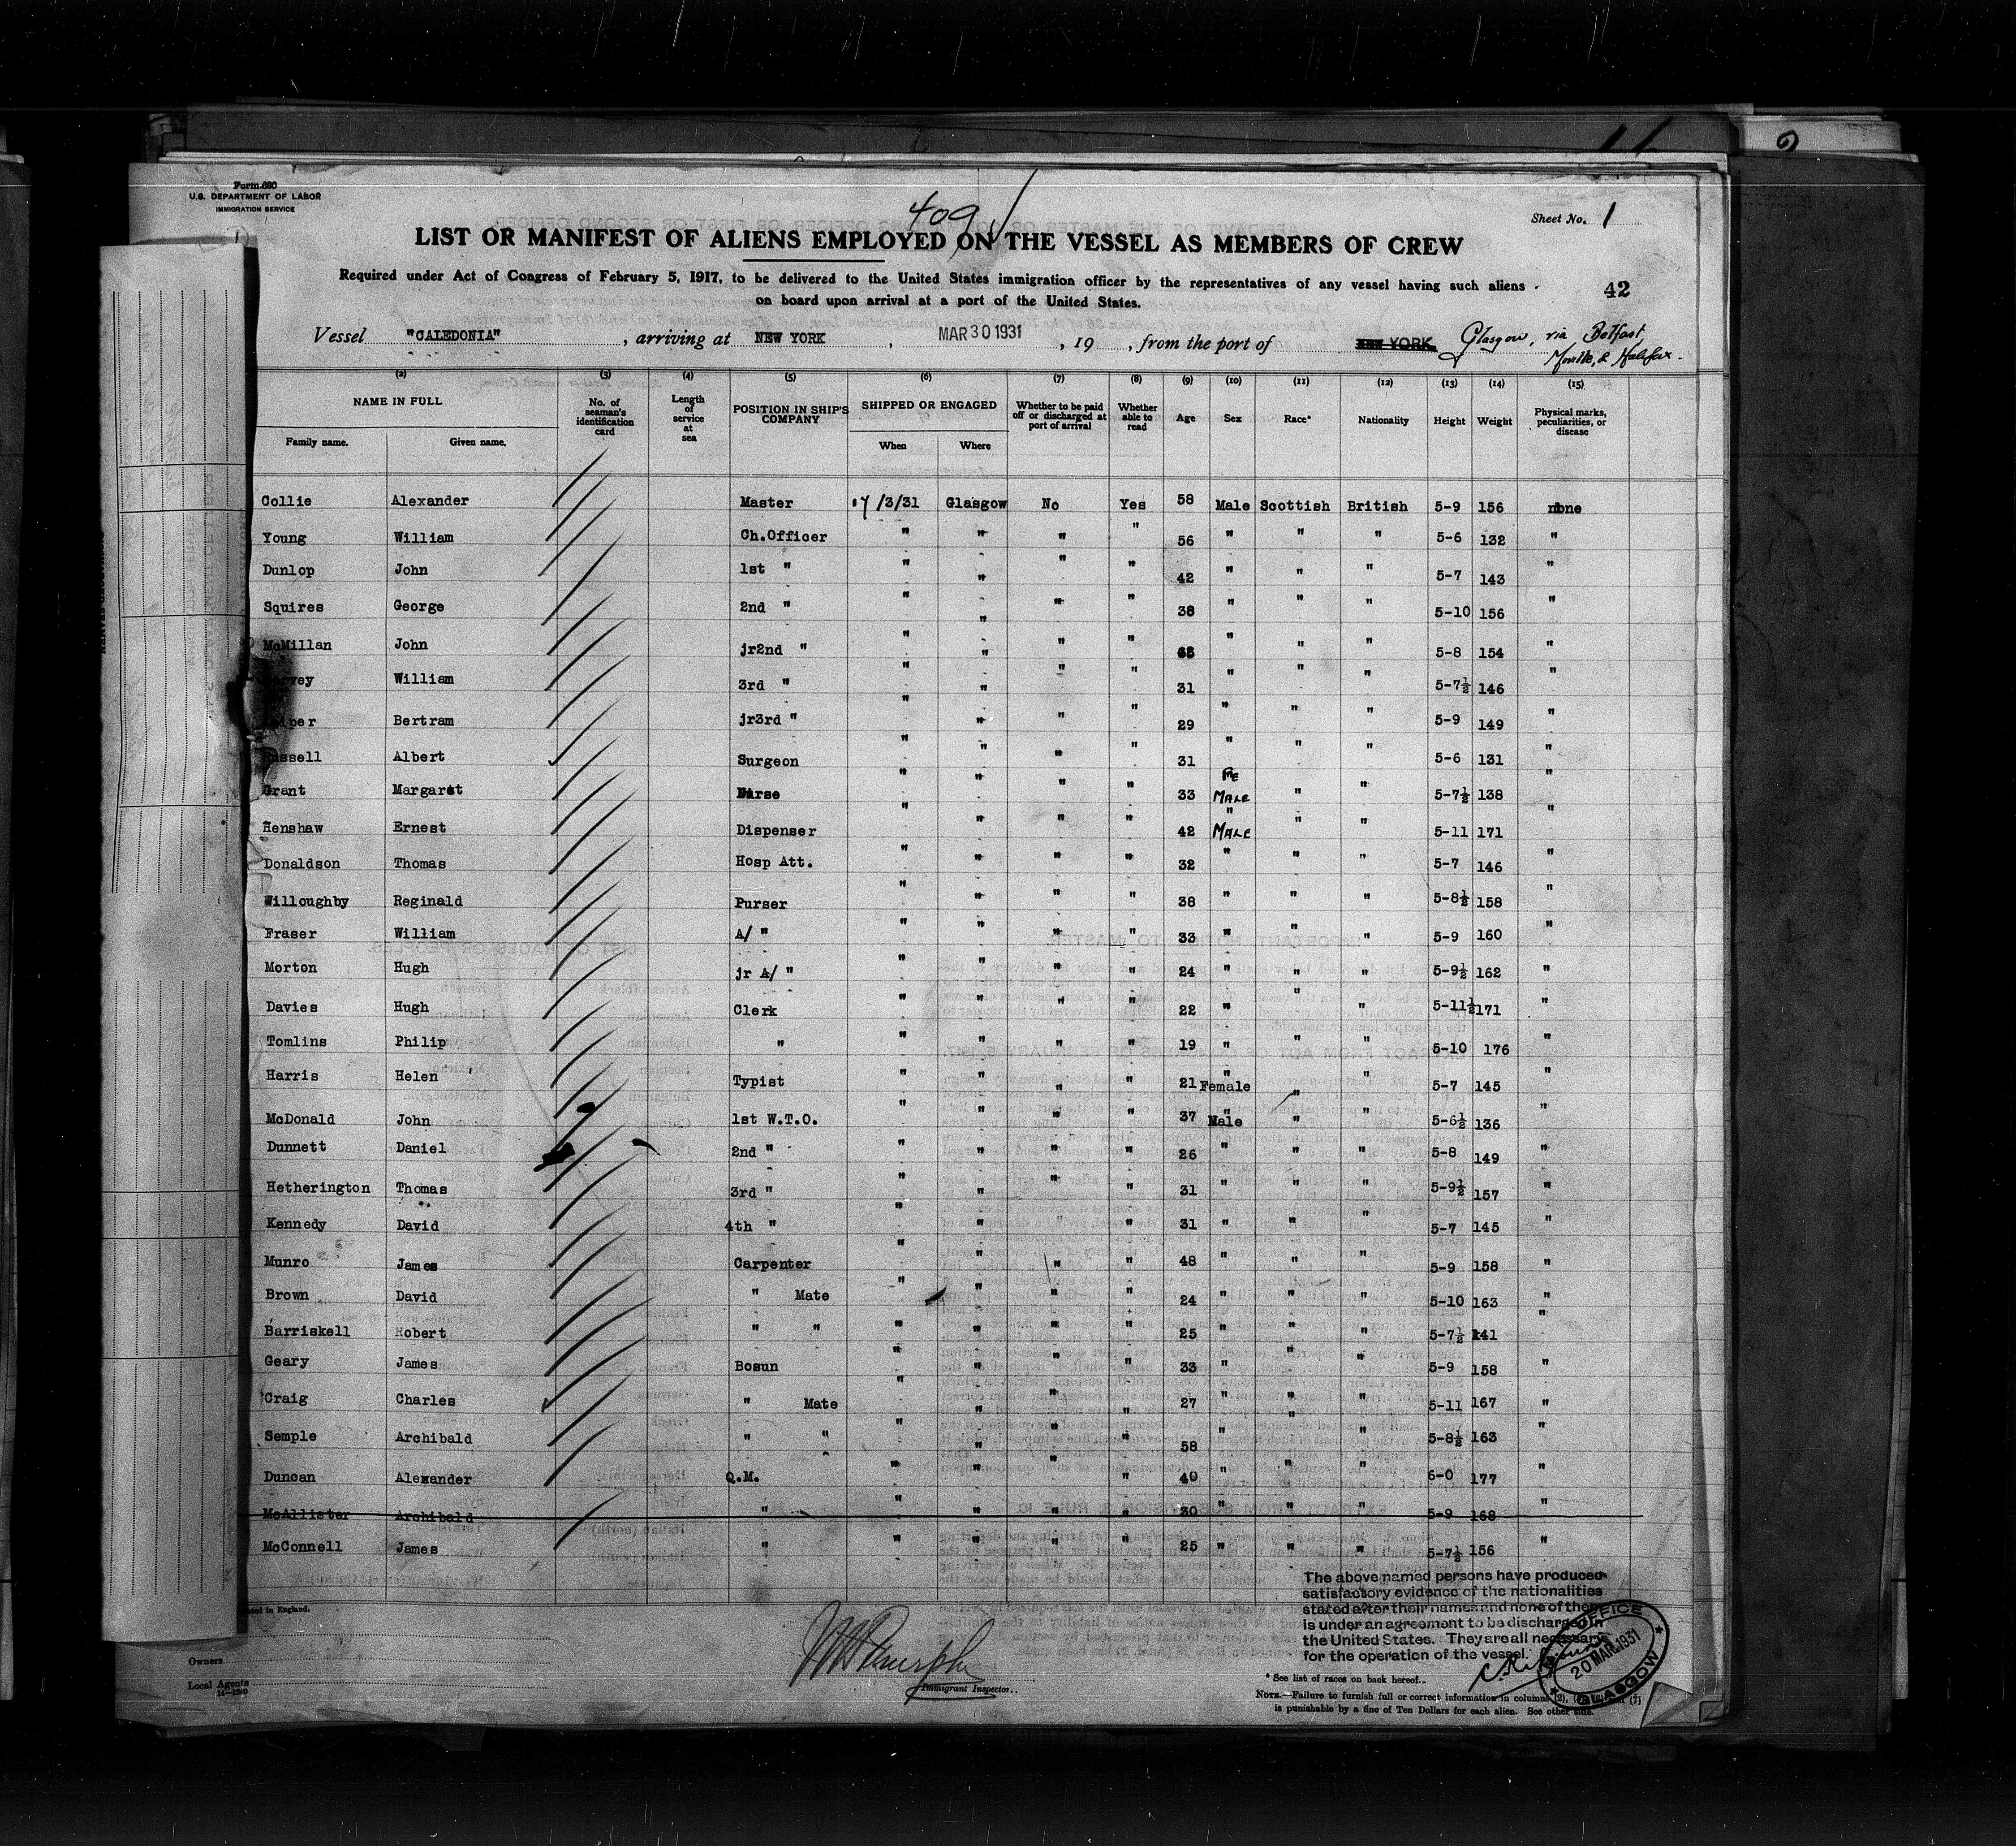 Form 680
U.S. DEPARTMENT OF LABOR
IMMIGRATION SERVICE
409
Sheet No. 1
LIST OR MANIFEST OF ALIENS EMPLOYED ON THE VESSEL AS MEMBERS OF CREW
Required under Act of Congress of February 5, 1917, to be delivered to the United States immigration officer by the representatives of any vessel having such aliens
on board upon arrival at a port of the United States.
42
Vessel "CALEDONIA", arriving at NEW YORK, MAR 30 1931, 19 , from the port of NEW YORK Glasgow, via Belfast,
& Halifax.
(2) (3) (4) (5) (6) (7) (8) (9) (10) (11) (12) (13) (14) (15)
NAME IN FULL No. of seaman's identification card Length of service at sea POSITION IN SHIP'S COMPANY SHIPPED OR ENGAGED Whether to be paid off or discharged at port of arrival Whether able to read Age Sex Race* Nationality Height Weight Physical marks, peculiarities, or disease
Family name. Given name. When Where
Collie Alexander Master 17/3/31 Glasgow No Yes 58 Male Scottish British 5-9 156 none
Young William Ch.Officer " " " " 56 " " " 5-6 132 "
Dunlop John 1st " " " " " 42 " " " 5-7 143 "
Squires George 2nd " " " " " 38 " " " 5-10 156 "
McMillan John jr2nd " " " " " " " " 5-8 154 "
William 3rd " " " " " 31 " " " 5-7½ 146 "
Bertram jr3rd " " " " " 29 " " " 5-9 149 "
Russell Albert Surgeon " " " " 31 " " " 5-6 131 "
Grant Margaret Nurse " " " " 33 Fe Male " " 5-7½ 138 "
Henshaw Ernest Dispenser " " " " 42 " Male " " 5-11 171 "
Donaldson Thomas Hosp Att. " " " " 32 " " " 5-7 146 "
Willoughby Reginald Purser " " " " 38 " " " 5-8½ 158 "
Fraser William A/ " " " " " 33 " " " 5-9 160 "
Morton Hugh jr A/ " " " " " 24 " " " 5-9½ 162 "
Davies Hugh Clerk " " " " 22 " " " 5-11½ 171 "
Tomlins Philip " " " " " 19 " " " 5-10 176 "
Harris Helen Typist " " " " 21 Female " " 5-7 145 "
McDonald John 1st W.T.O. " " " " 37 Male " " 5-6½ 136 "
Dunnett Daniel 2nd " " " " " 26 " " " 5-8 149 "
Hetherington Thomas 3rd " " " " " 31 " " " 5-9½ 157 "
Kennedy David 4th " " " " " 31 " " " 5-7 145 "
Munro James Carpenter " " " " 48 " " " 5-9 158 "
Brown David " Mate " " " " 24 " " " 5-10 163 "
Barriskell Robert " " " " " " 25 " " " 5-7½ 141 "
Geary James Bosun " " " " 33 " " " 5-9 158 "
Craig Charles " Mate " " " " 27 " " " 5-11 167 "
Semple Archibald " " " " " " 58 " " " 5-8½ 163 "
Duncan Alexander Q.M. " " " " 40 " " " 6-0 177 "
McAllister Archibald " " " " " 30 " " " 5-9 168 "
McConnell James " " " " " 25 " " " 5-7½ 156 "
The above named persons have produced
satisfactory evidence of the nationalities
stated after their names and none of them
is under an agreement to be discharged in
the United States. They are all necessary
for the operation of the vessel.
OFFICE
20 MAR 1931
GLASGOW
Printed in England.
Owners
Local Agents
14—1240
Immigrant Inspector.
* See list of races on back hereof.
NOTE.—Failure to furnish full or correct information in columns (2), (7)
is punishable by a fine of Ten Dollars for each alien. See other side.